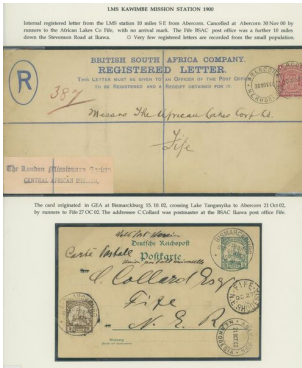 LMS KAWIMBE MISSION STATION 1900
Internal registered letter from the LMS station 10 miles S E from Abercorn. Cancelled at Abercorn 30 Nov 00 by
runners to the African Lakes Co Fife, with no arrival mark. The Fife BSAC post office was a further 10 miles
down the Stevenson Road at Ikawa. Very few registered letters are recorded from the small population.
BRITISH SOUTH AFRICA COMPANY.
REGISTERED LETTER.
THIS LETTER MUST BE GIVEN TO AN OFFICER OF THE POST OFFICE
TO BE REGISTERED AND A RECEIPT OBTAINED FOR IT.
R
387
Messrs The African Lakes Corp Ld.
Fife
The London Missionary Society
CENTRAL AFRICAN MISSION.
The card originated in GEA at Bismarckburg 15.10.02, crossing Lake Tanganyika to Abercorn 21 Oct 02,
by runners to Fife 27 OC 02. The addressee C Collard was postmaster at the BSAC Ikawa post office Fife.
Deutsche Reichspost
Postkarte
Carte Postale
C. Collard Esq
Fife
N. E. R